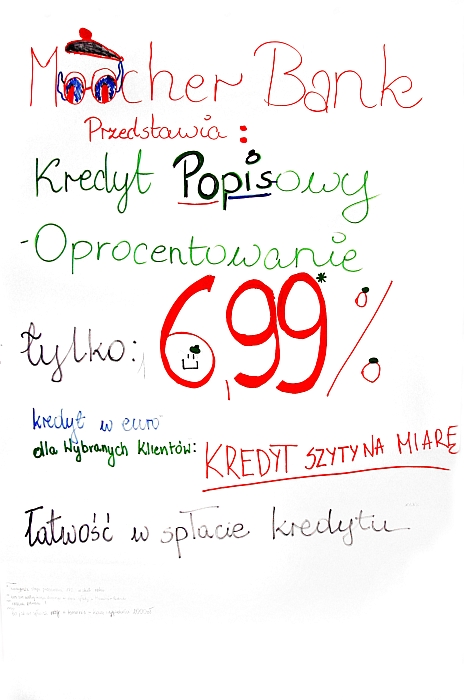 Moocher Bank
Przedstawia :
Kredyt Popisowy
- Oprocentowanie
tylko: 6,99* %
kredyt w euro
dla Wybranych Klientów:
KREDYT SZYTY NA MIARĘ
łatwość w spłacie kredytu